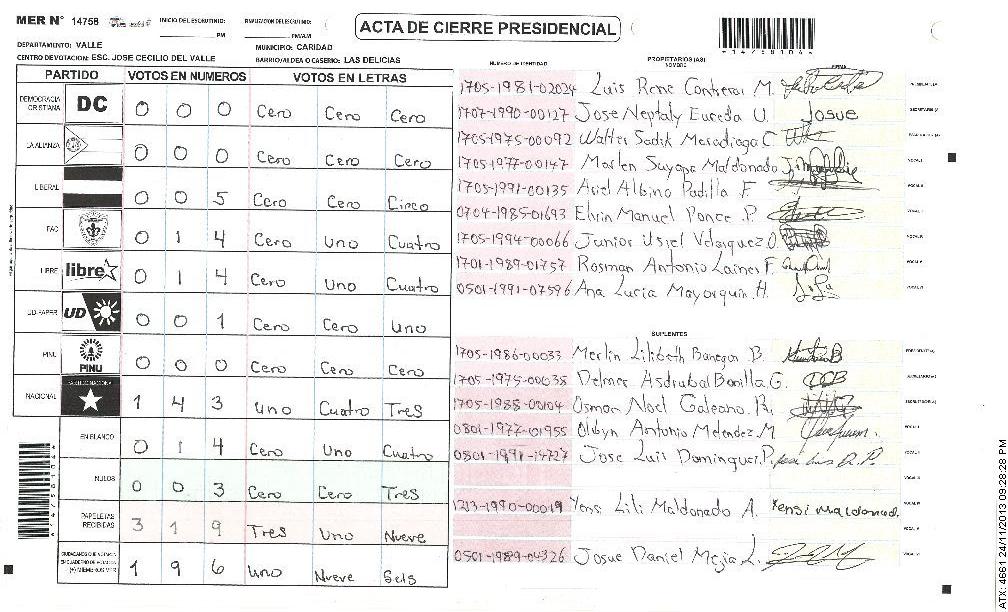 MER N° 14758
INICIO DEL ESCRUTINIO:
PM
PM/AM
ACTA DE CIERRE PRESIDENCIAL
*1475810A*
DEPARTAMENTO: VALLE
MUNICIPIO: CARIDAD
CENTRO DE VOTACION: ESC. JOSE CECILIO DEL VALLE
BARRIO/ALDEA O CASERIO: LAS DELICIAS
NUMERO DE IDENTIDAD
PROPIETARIOS (AS)
NOMBRE
FIRMA
PARTIDO VOTOS EN NUMEROS VOTOS EN LETRAS
DEMOCRACIA CRISTIANA DC 0 0 0 Cero Cero Cero
LA ALIANZA 0 0 0 Cero Cero Cero
LIBERAL 0 0 5 Cero Cero Cinco
PAC 0 1 4 Cero Uno Cuatro
LIBRE libre 0 1 4 Cero Uno Cuatro
UD-FAPER UD 0 0 1 Cero Cero Uno
PINU PINU 0 0 0 Cero Cero Cero
NACIONAL PARTIDO NACIONAL 1 4 3 Uno Cuatro Tres
EN BLANCO 0 1 4 Cero Uno Cuatro
NULOS 0 0 3 Cero Cero Tres
PAPELETAS RECIBIDAS 3 1 9 Tres Uno Nueve
CIUDADANOS QUE VOTARON EN CUADERNO DE VOTACION (+) MIEMBROS MER 1 9 6 Uno Nueve Seis
1705-1981-02024 Luis Rene Contreras M.
1707-1990-00127 Jose Neptaly Euceda U. Josue
1705-1975-00092 Walter Sadik Meradiaga C.
1705-1977-00147 Marlen Suyapa Maldonado J.
1705-1991-00135 Ariel Albino Padilla F.
0704-1985-01693 Elvin Manuel Ponce P.
1705-1994-00066 Junior Usiel Velasquez O.
1701-1989-01757 Rosman Antonio Laines F.
0501-1991-07596 Ana Lucia Mayorquin H.
SUPLENTES
1705-1986-00033 Merlin Lilibeth Banegas B.
1705-1975-00038 Delmer Asdrubal Bonilla G.
1705-1988-00104 Osman Noel Galeano R.
0801-1977-01955 Olbyn Antonio Melendez M
0801-1991-14727 Jose Luis Dominguez P.
1213-1990-00019 Yensi Lili Maldonado A. Yensi Maldonado.
0501-1989-04326 Josue Daniel Mejia L.
ATX: 4661 24/11/2013 09:28:28 PM